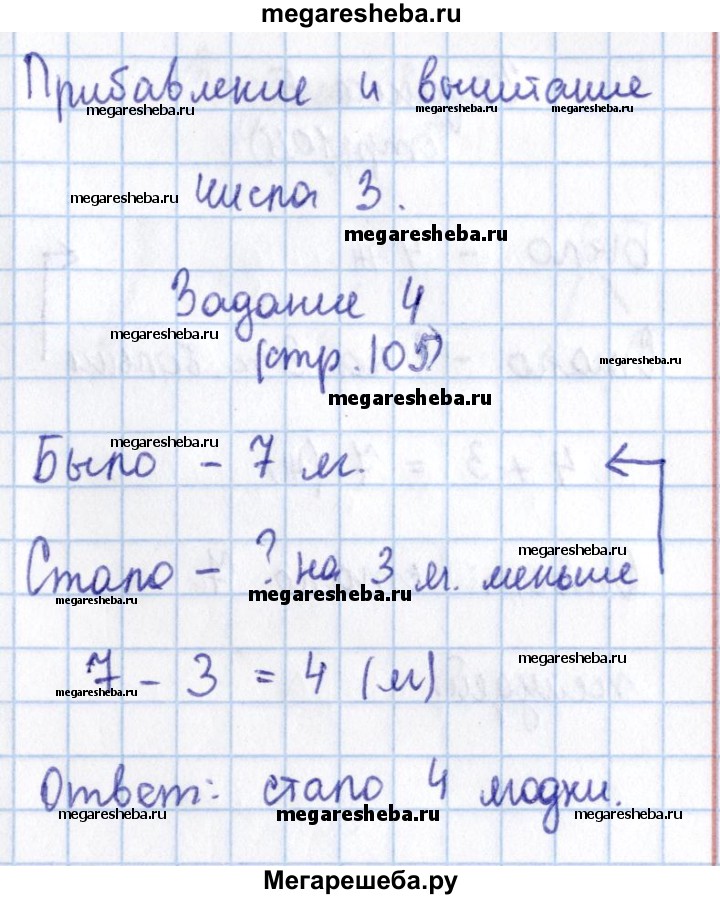 megaresheba.ru
Прибавление и вычитание
megaresheba.ru megaresheba.ru megaresheba.ru
числа 3.
megaresheba.ru
megaresheba.ru
Задание 4
megaresheba.ru
(стр. 105)
megaresheba.ru
megaresheba.ru
megaresheba.ru
Было - 7 м.
Стало - ? на 3 м. меньше
megaresheba.ru
megaresheba.ru
megaresheba.ru
7 - 3 = 4 (м)
megaresheba.ru
megaresheba.ru
Ответ: стало 4 модки.
megaresheba.ru megaresheba.ru megaresheba.ru
Мегарешеба.ру